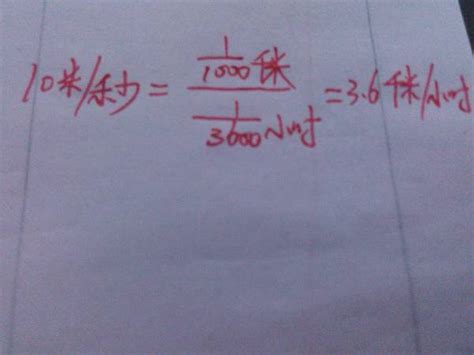 10米/秒 = \frac{\frac{1}{1000}千米}{\frac{1}{3600}小时} = 3.6千米/小时